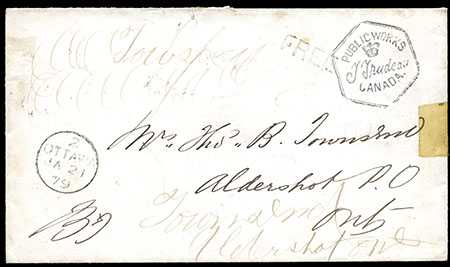 Townsend
FREE
PUBLIC WORKS
T Trudeau
CANADA.
Mr. Thos. B. Townsend
Aldershot P.O
Ont
2
OTTAWA
JA 21
79
Townsend
Aldershot Ont